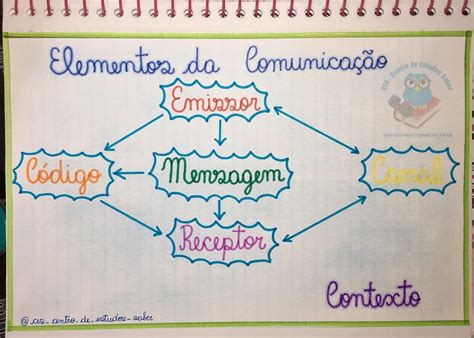 Elementos da Comunicação
CES - Centro de Estudos Saber
Emissor
Código
Mensagem
Canal
Receptor
Contexto
@_ces_centro_de_estudos_saber